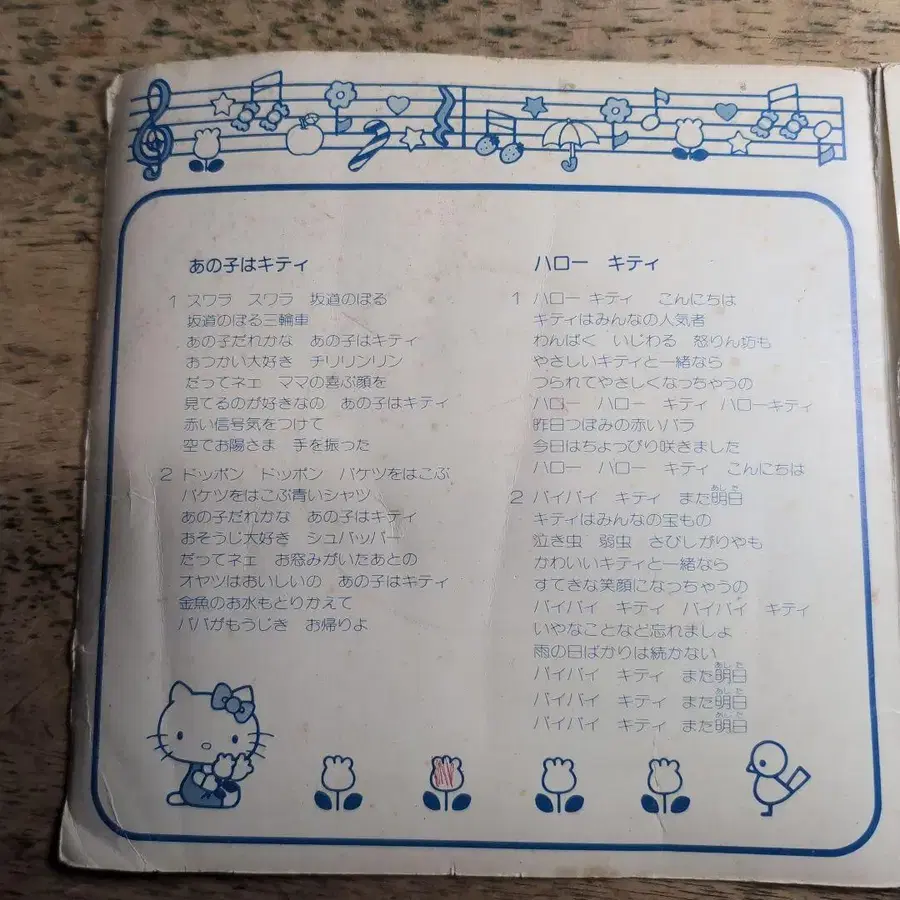 あの子はキティ
1 スワラ スワラ 坂道のぼる
坂道のぼる三輪車
あの子だれかな あの子はキティ
おつかい大好き チリリンリン
だってネェ ママの喜ぶ顔を
見てるのが好きなの あの子はキティ
赤い信号気をつけて
空でお陽さま 手を振った
2 ドッポン ドッポン バケツをはこぶ
バケツをはこぶ青いシャツ
あの子だれかな あの子はキティ
おそうじ大好き シュバッバー
だってネェ お窓みがいたあとの
オヤツはおいしいの あの子はキティ
金魚のお水もとりかえて
パパがもうじき お帰りよ
ハロー キティ
1 ハロー キティ こんにちは
キティはみんなの人気者
わんぱく いじわる 怒りん坊も
やさしいキティと一緒なら
つられてやさしくなっちゃうの
ハロー ハロー キティ ハローキティ
昨日つぼみの赤いバラ
今日はちょっぴり咲きました
ハロー ハロー キティ こんにちは
2 バイバイ キティ また明日
キティはみんなの宝もの
泣き虫 弱虫 さびしがりやも
かわいいキティと一緒なら
すてきな笑顔になっちゃうの
バイバイ キティ バイバイ キティ
いやなことなど忘れましょ
雨の日ばかりは続かない
バイバイ キティ また明日
バイバイ キティ また明日
バイバイ キティ また明日